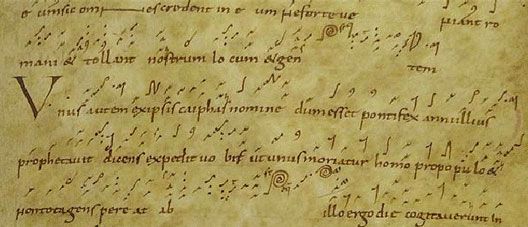 eum sic om nescredent in e um neforte ve niant ro
mani & tollant nostrum lo cum &gen tem
Vnus autem exipsis caiphas nomine dum esset pontifex anniillius
prophetavit dicens expedit vo bis ut unus moriatur homo propopulo &
nontotagens pere at ab illo ergo die cogitaverunt in